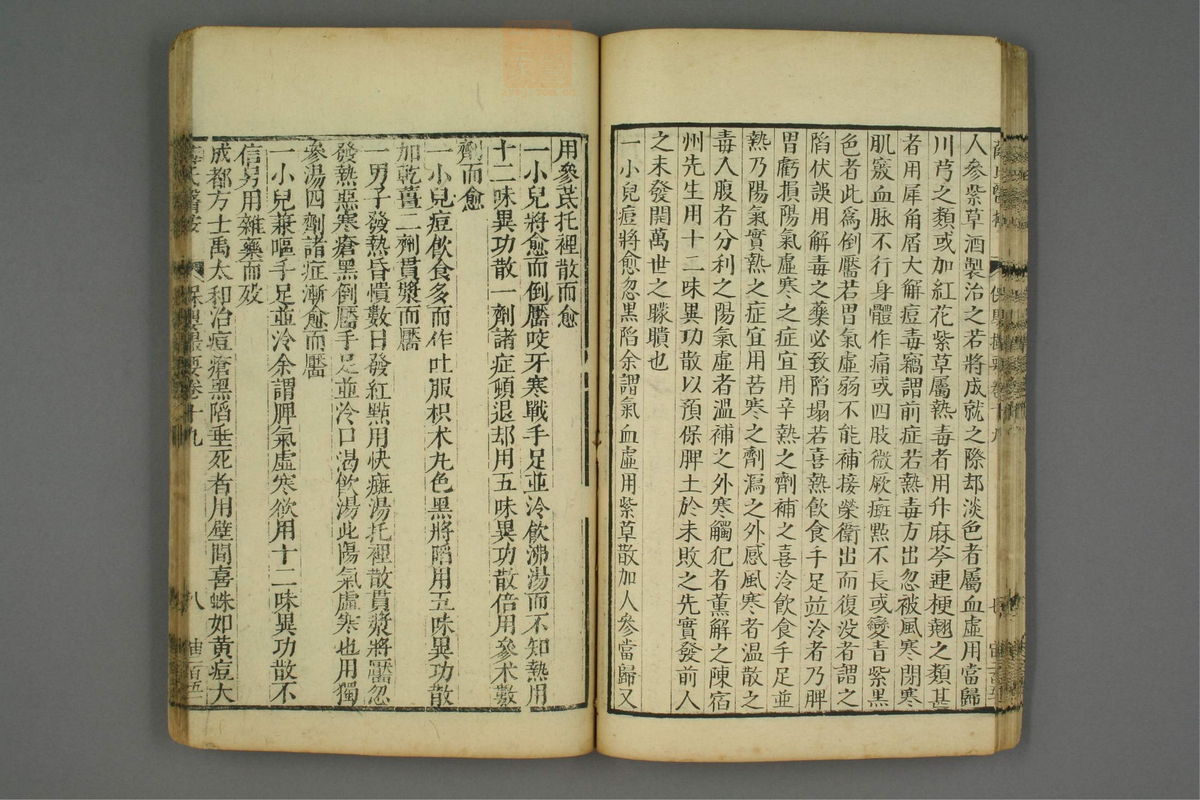 人參紫草酒製治之若將成就之際却淡色者屬血虛用當歸
川芎之類或加紅花紫草屬熱毒者用升麻芩連梗翹之類甚
者用犀角屑大解痘毒竊謂前症若熱毒方出忽被風寒閉塞
肌竅血脉不行身體作痛或四肢微厥斑點不長或變青紫黑
色者此為倒靨若胃氣虛弱不能補接榮衛出而復没者謂之
陷伏誤用解毒之藥必致陷塌若喜熱飲食手足並冷者乃脾
胃虧損陽氣虛寒之症宜用辛熱之劑補之喜冷飲食手足並
熱乃陽氣實熱之症宜用苦寒之劑瀉之外感風寒者温散之
毒入腹者分利之陽氣虛者溫補之外寒觸犯者薰解之陳宿
州先生用十二味異功散以預保脾土於未敗之先實發前人
之未發開萬世之矇瞶也
一小兒痘將愈忽黑陷余謂氣血虛用紫草散加人參當歸又
用參芪托裡散而愈
一小兒將愈而倒靨咬牙寒戰手足並冷飲沸湯而不知熱用
十二味異功散一劑諸症頓退却用五味異功散倍用參术數
劑而愈
一小兒痘飲食多而作吐服枳术丸色黑將陷用五味異功散
加乾薑二劑貫漿而靨
一男子發熱昏憒數日發紅點用快斑湯托裡散貫漿將靨忽
發熱惡寒瘡黑倒靨手足並冷口渴飲湯此陽氣虛寒也用獨
參湯四劑諸症漸愈而靨
一小兒兼嘔手足並冷余謂脾氣虛寒欲用十二味異功散不
信另用雜藥而歿
成都方士禹太和治痘瘡黑陷垂死者用壁間喜蛛如黄痘大
薛氏醫按
保嬰撮要卷十九
八